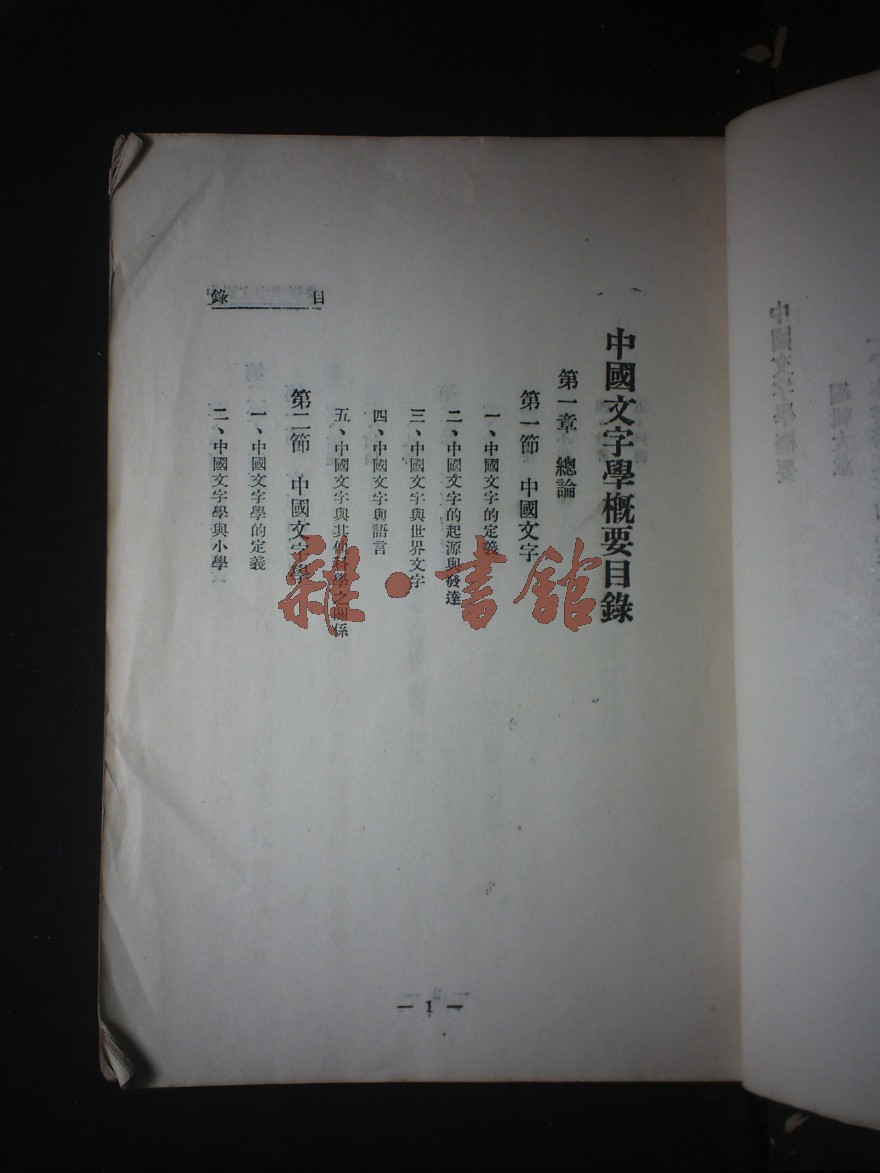 中國文字學概要目錄
第一章 總論
第一節 中國文字
一、中國文字的定義
二、中國文字的起源與發達
三、中國文字與世界文字
四、中國文字與語言
五、中國文字與其他科學之關係
第二節 中國文字學
一、中國文字學的定義
二、中國文字學與小學
目錄
— 1 —
雜·書館
中國文字學概要
編輯大意